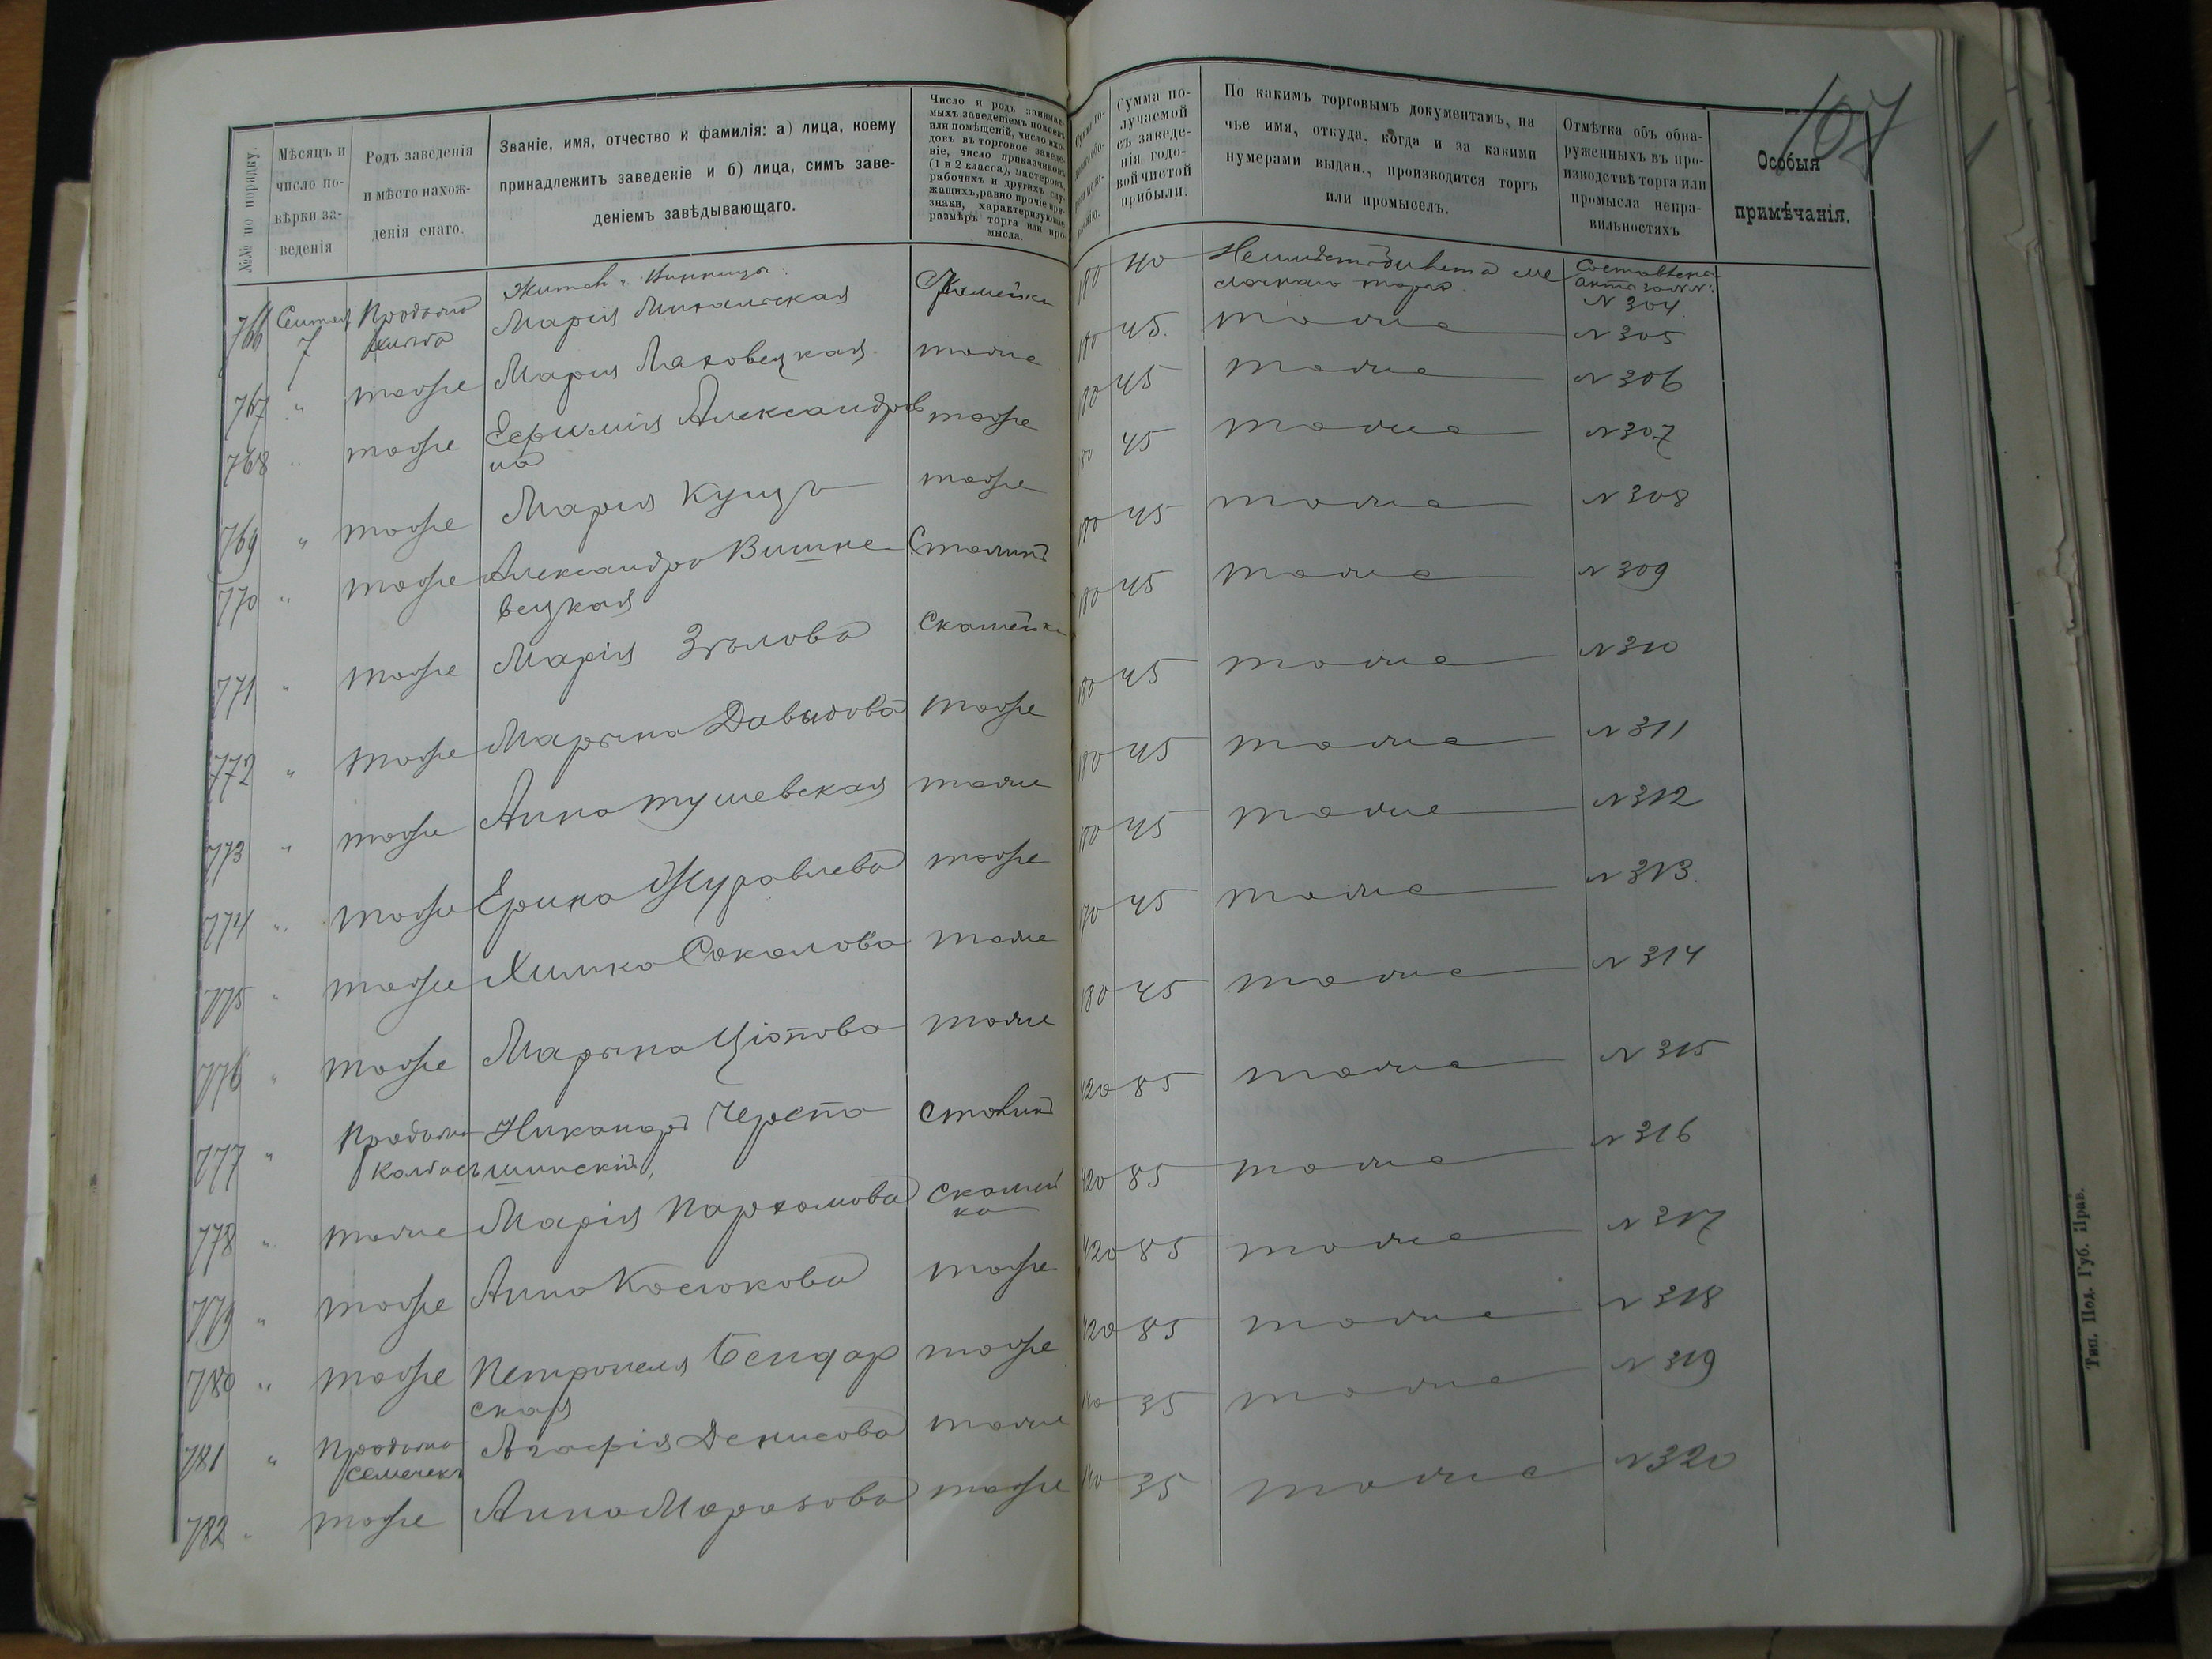 107
№№ по порядку.
Мѣсяцъ и
число по-
вѣрки за-
ведения
Родъ заведенія
и мѣсто нахож-
денія онаго.
Званіе, имя, отчество и фамилія: а) лица, коему
принадлежитъ заведеніе и б) лица, симъ заве-
деніемъ завѣдывающаго.
Число и родъ занимае-
мыхъ заведеніемъ покоевъ
или помѣщеній, число вхо-
довъ въ торговое заведе-
ніе, число приказчиковъ
(1 и 2 класса), мастеровъ,
рабочихъ и другихъ слу-
жащихъ, равно прочіе при-
знаки, характеризующіе
размѣръ торга или про-
мысла.
Сумма по-
лучаемой
съ заведе-
нія годо-
вой чистой
прибыли.
По какимъ торговымъ документамъ, на
чье имя, откуда, когда и за какими
нумерами выдан., производится торгъ
или промыселъ.
Отмѣтка объ обна-
руженныхъ въ про-
изводствѣ торга или
промысла непра-
вильностяхъ.
Особыя
примѣчанія.
Житов. г. Винницы
766 Сентяб 7 Продажа хлѣба Марія Михальская Скамейка 180 40 Неимѣетъ билета ме лочнаго торга. Составлены акты за №№: N 304
767 " тоже Мария Маховецкая тоже 180 45 тоже N 305
768 " тоже Ефимія Александров тоже 180 45 тоже N 306
на
769 " тоже Мария Куцъ тоже 180 45 тоже N 307
770 " тоже Александра Вишне Столикъ 180 45 тоже N 308
вецкая
771 " тоже Марія Зголова Скамейка 180 45 тоже N 309
772 " тоже Марына Давыдова тоже 180 45 тоже N 310
773 " тоже Анна Тушевская тоже 180 45 тоже N 311
774 " тоже Ерина Журавлева тоже 180 45 тоже N 312
775 " тоже Химка Соколова тоже 170 45 тоже N 313
776 " тоже Марына Ціопова тоже 180 45 тоже N 314
777 " Продажа Никаноръ Череста столикъ 420 85 тоже N 315
колбасъ шинскій,
778 " тоже Марія Пархомова скамей 420 85 тоже N 316
ка
779 " тоже Анна Косюкова тоже 420 85 тоже N 317
780 " тоже Петронеля Бендар тоже 420 85 тоже N 318
ская
781 " Продажа Агафія Денисова тоже 140 35 тоже N 319
семечекъ
782 " тоже Анна Морозова тоже 140 35 тоже N 320
Тип. Под. Губ. Прав.